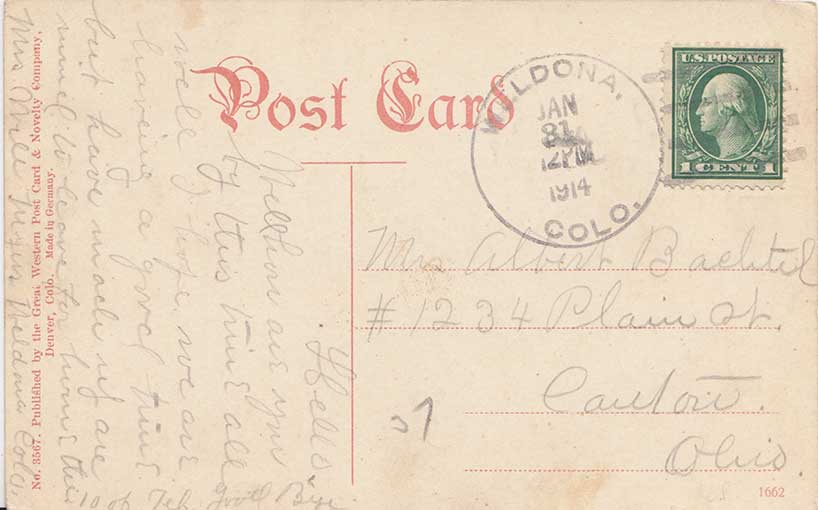 Post Card
WELDONA,
JAN
31
12PM
1914
COLO.
U.S. POSTAGE
1 CENT 1
Mr. Albert Bachtel
#1234 Plain St.
Canton.
Ohio.
Hello.
Well how are you
by this time all
well I hope. we are
having a good time
but have made up are
mind to leave for home this
10 of Feb Good Bye
Mrs Will Weldona Colo.
No. 3567. Published by the Great Western Post Card & Novelty Company,
Denver, Colo. Made in Germany.
1662